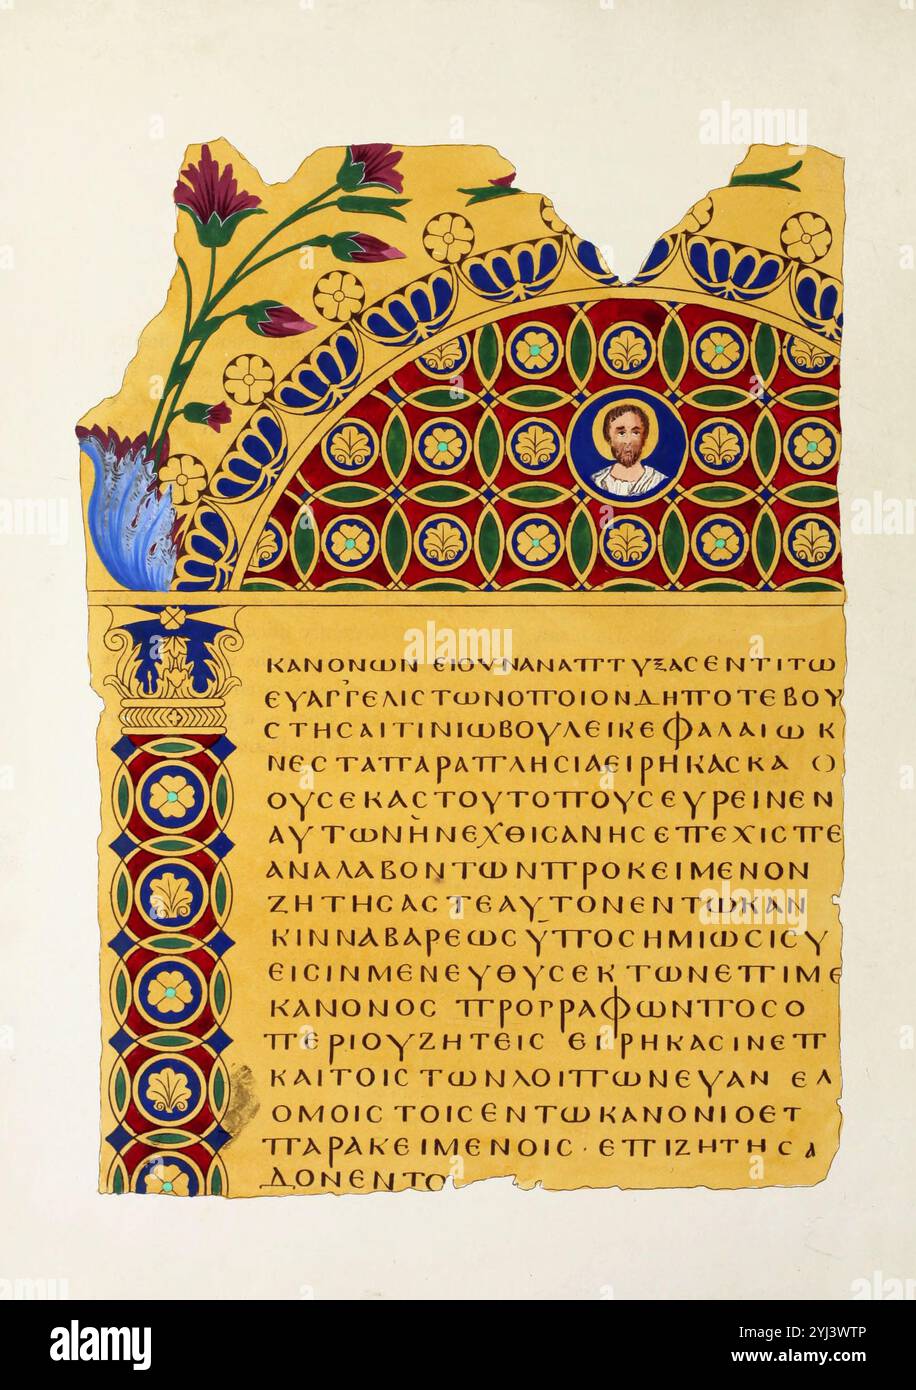 ΚΑΝΟΝΩΝ ΕΙΟΥΝΑΝΑΠΤΥΞΑϹΕΝΤΙΤΩ
ΕΥΑΓΓΕΛΙϹΤΩΝΟΠΟΙΟΝΔΗΠΟΤΕΒΟΥ
ϹΤΗϹΑΙΤΙΝΙΩΒΟΥΛΕΙΚΕΦΑΛΑΙΩΚ
ΝΕϹΤΑΠΑΡΑΠΛΗϹΙΑΕΙΡΗΚΑϹΚΑ Ο
ΟΥϹΕΚΑϹΤΟΥΤΟΠΟΥϹΕΥΡΕΙΝΕΝ
ΑΥΤΩΝῊΝΕΧΘΙϹΑΝΗϹΕΠΕΧΙϹΠΕ
ΑΝΑΛΑΒΟΝΤΩΝΠΡΟΚΕΙΜΕΝΟΝ
ΖΗΤΗϹΑϹΤΕΑΥΤΟΝΕΝΤΩΚΑΝ
ΚΙΝΝΑΒΑΡΕΩϹΫΠΟϹΗΜΙΩϹΙϹΥ
ΕΙϹΙΝΜΕΝΕΥΘΥϹΕΚΤΩΝΕΠΙΜΕ
ΚΑΝΟΝΟϹ ΠΡΟΓΡΑΦΩΝΠΟϹΟ
ΠΕΡΙΟΥΖΗΤΕΙϹ ΕΙΡΗΚΑϹΙΝΕΠ
ΚΑΙΤΟΙϹΤΩΝΛΟΙΠΩΝΕΥΑΝ ΕΛ
ΟΜΟΙϹΤΟΙϹΕΝΤΩΚΑΝΟΝΙΟΕΤ
ΠΑΡΑΚΕΙΜΕΝΟΙϹ·ΕΠΙΖΗΤΗϹΑ
ΔΟΝΕΝΤΟ
alamy
Image ID: 2YJ3WTP
www.alamy.com